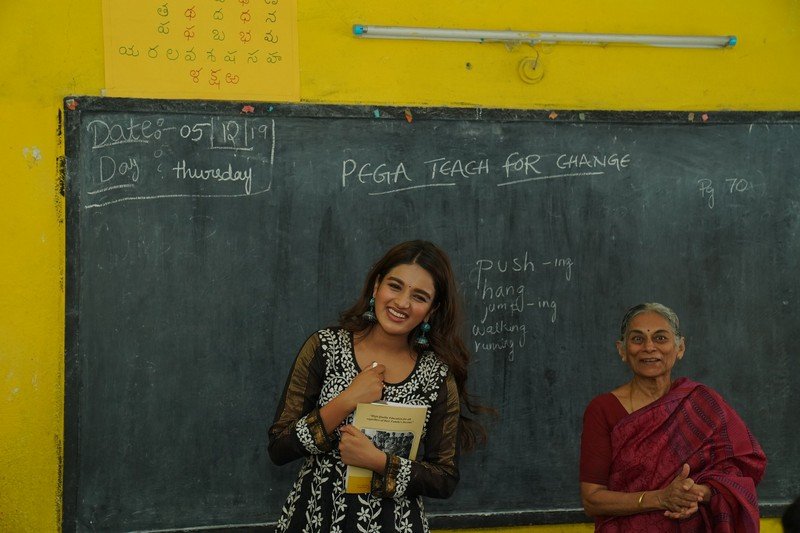 త థ ద ధ న
ప ఫ బ భ మ
య ర ల వ శ ష స హ
ళ క్ష ఱ
Date:- 05|12|19
Day : thursday
PEGA TEACH FOR CHANGE
Pg 70
push -ing
hang
jump -ing
walking
running